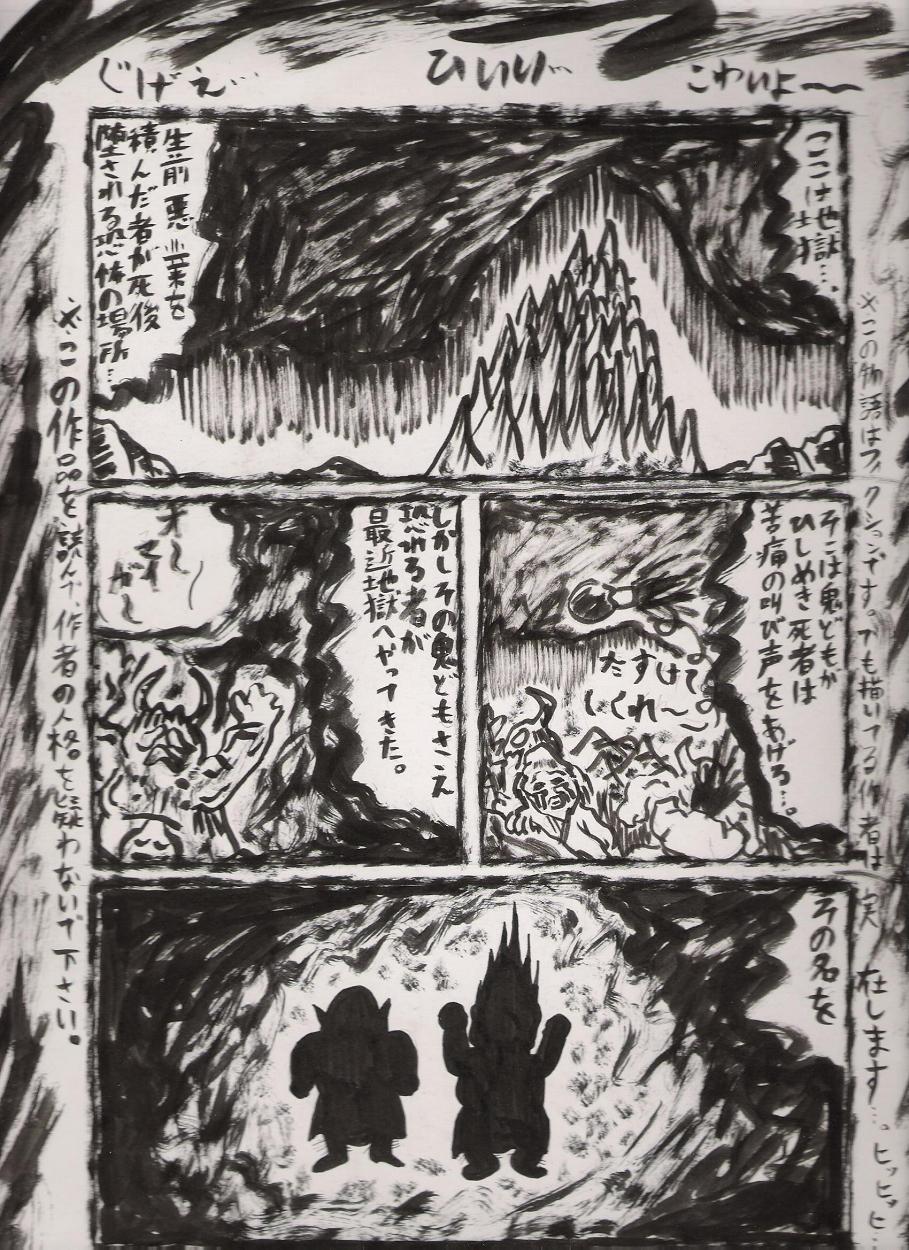 こわいよ〜
ひいい…
じげえ…
※この物語はフィクションです。でも描いてる作者は実在します…。ヒッヒッヒ…
ここは地獄…。
生前悪業を
積んだ者が死後
堕される恐怖の場所…
そこは鬼どもが
ひしめき死者は
苦痛の叫び声をあげる…。
たすけて
くれ〜
しかしその鬼どもさえ
恐れる者が
最近地獄へやってきた。
オ〜
マイ
ガ〜
その名を
※この作品を読んで、作者の人格を疑わないで下さい。